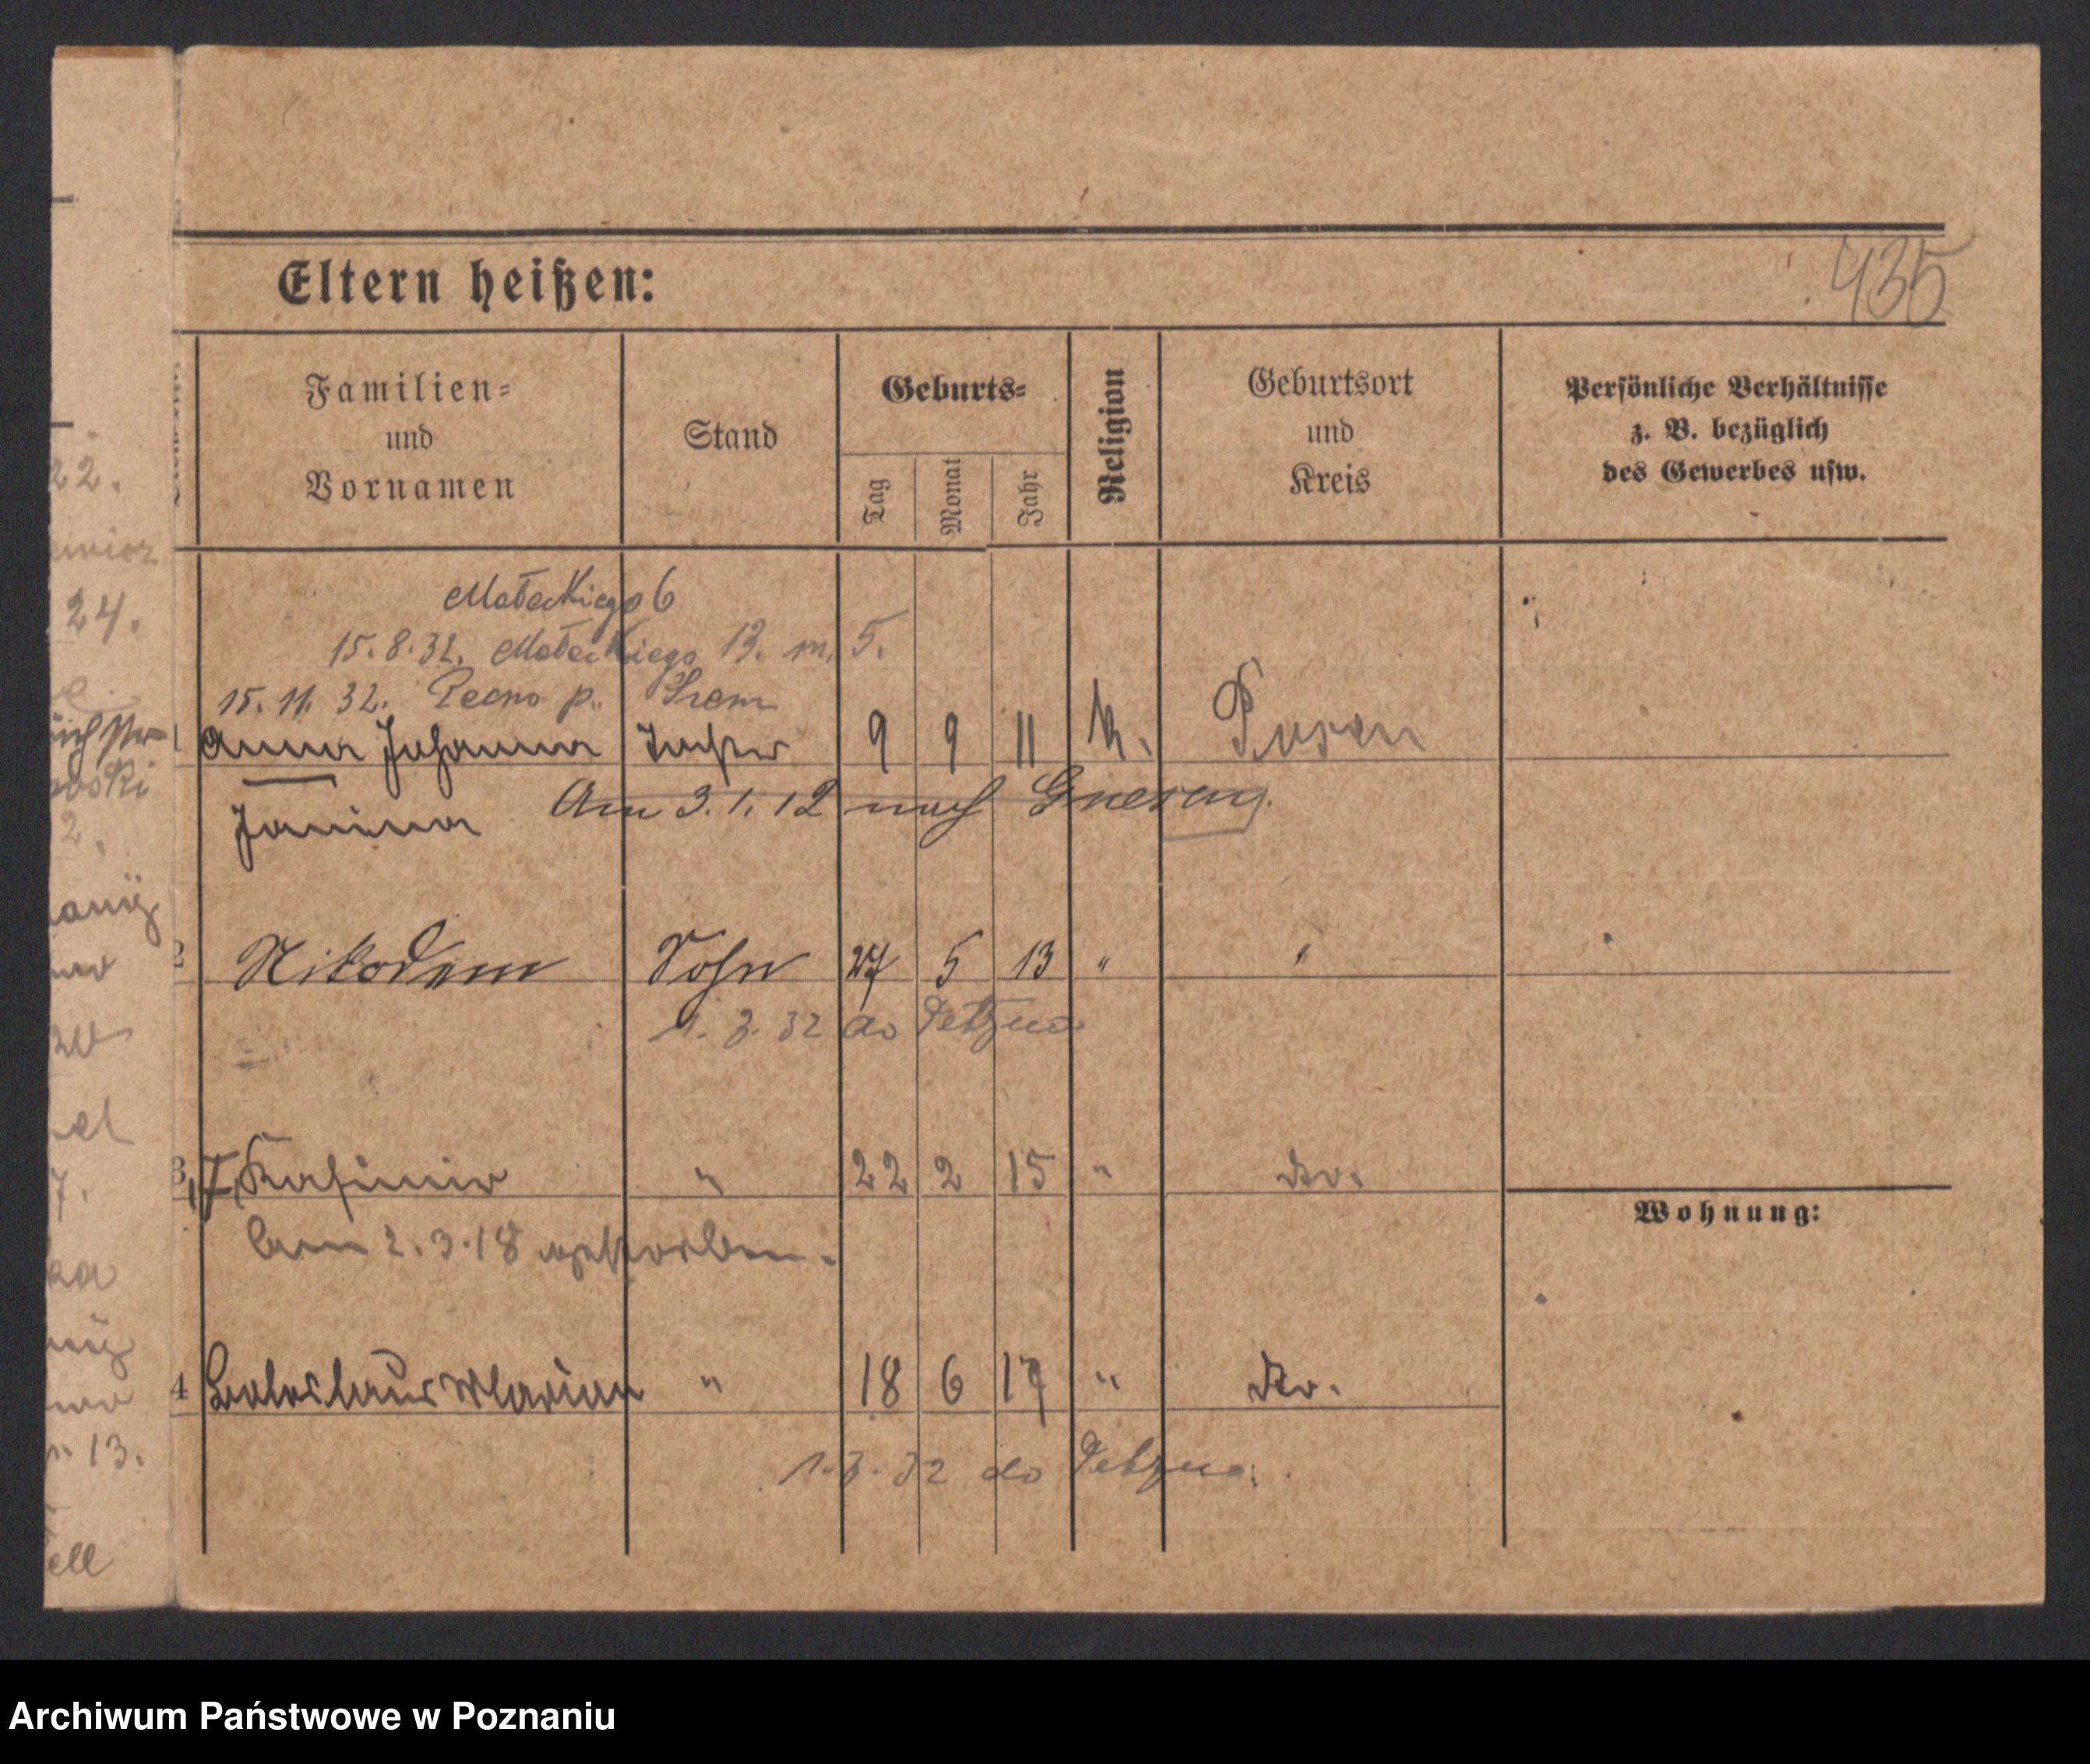 435
Eltern heißen:
Familien=
und
Vornamen
Stand
Geburts=
Tag
Monat
Jahr
Religion
Geburtsort
und
Kreis
Persönliche Verhältnisse
z. B. bezüglich
des Gewerbes usw.
Małeckiego 6
15.8.31. Małeckiego 13. m. 5.
15.11.32. Pecno p. Śrem
1 Anna Johanna Tochter 9 9 11 k. Posen
Janina
Am 3.1.12 nach Gnesen
2 Nikodem Sohn 27 5 13 " "
1. 3. 32 do
3, Kasimir " 22 2 15 " do.
Am 2.3.18 gestorben.
Wohnung:
4 Boleslaus Marian " 18 6 17 " do.
1. 3. 32 do
22.
24.
2.
7.
13.
ell
Archiwum Państwowe w Poznaniu